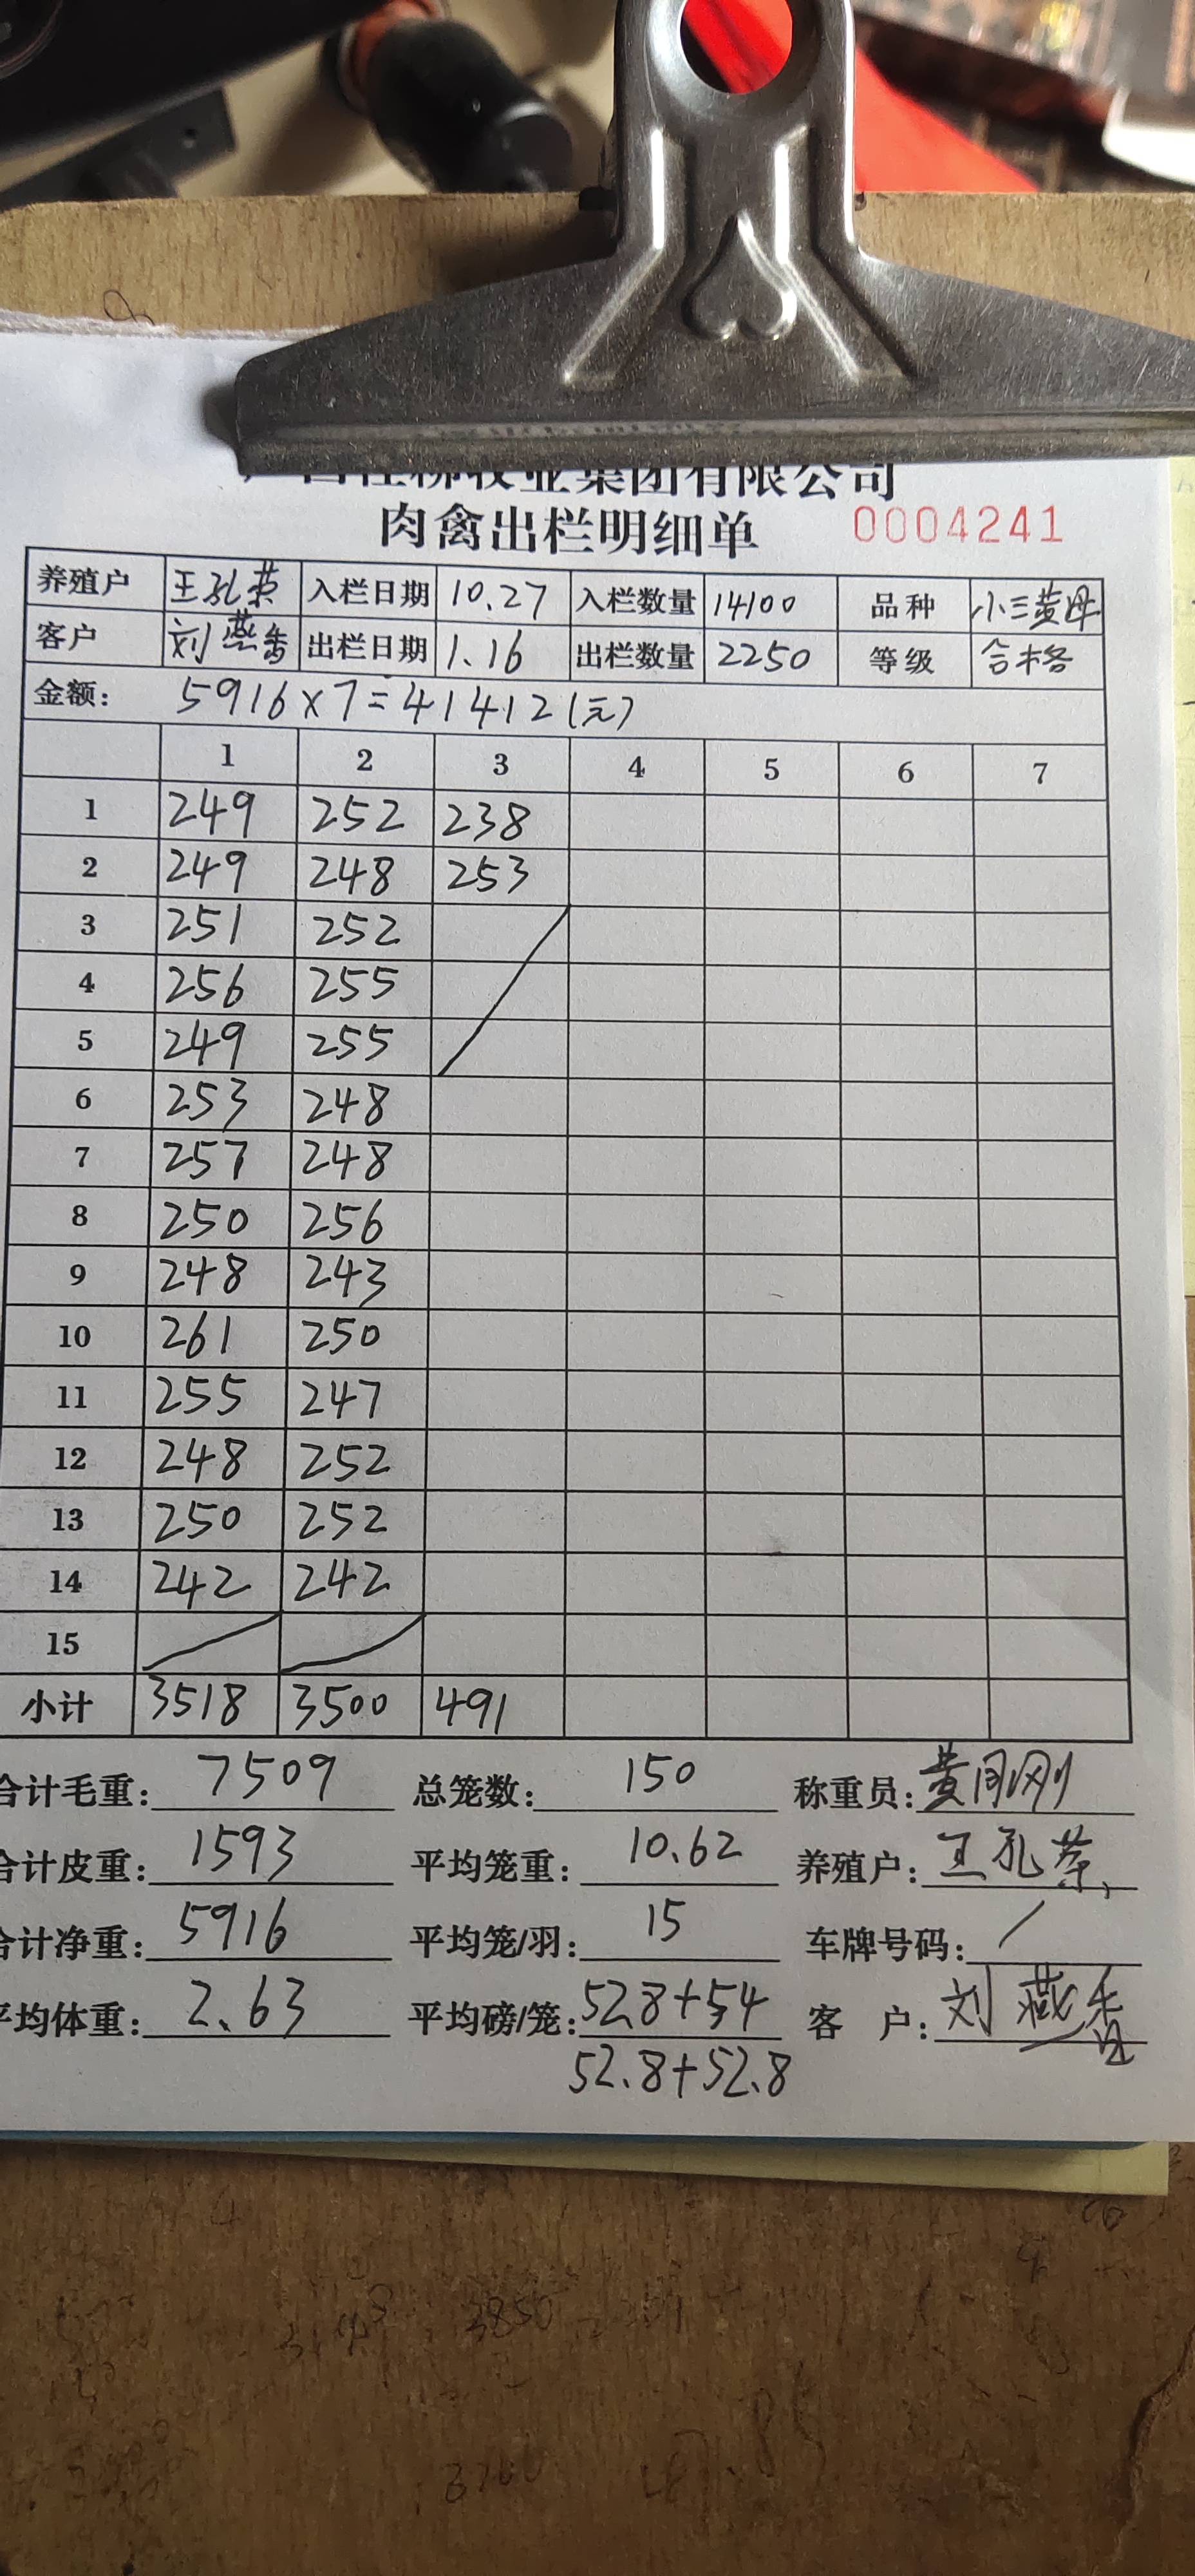 牧业集团有限公司
肉禽出栏明细单 0004241
养殖户 王孔荣 入栏日期 10.27 入栏数量 14100 品种 小三黄母
客户 刘燕香 出栏日期 1.16 出栏数量 2250 等级 合格
金额: 5916×7=41412(元)
1 2 3 4 5 6 7
1 249 252 238
2 249 248 253
3 251 252
4 256 255
5 249 255
6 253 248
7 257 248
8 250 256
9 248 243
10 261 250
11 255 247
12 248 252
13 250 252
14 242 242
15
小计 3518 3500 491
合计毛重: 7509 总笼数: 150 称重员: 黄刚
合计皮重: 1593 平均笼重: 10.62 养殖户: 王孔荣
合计净重: 5916 平均笼/羽: 15 车牌号码: /
平均体重: 2.63 平均磅/笼: 52.8+54 客 户: 刘燕香
52.8+52.8